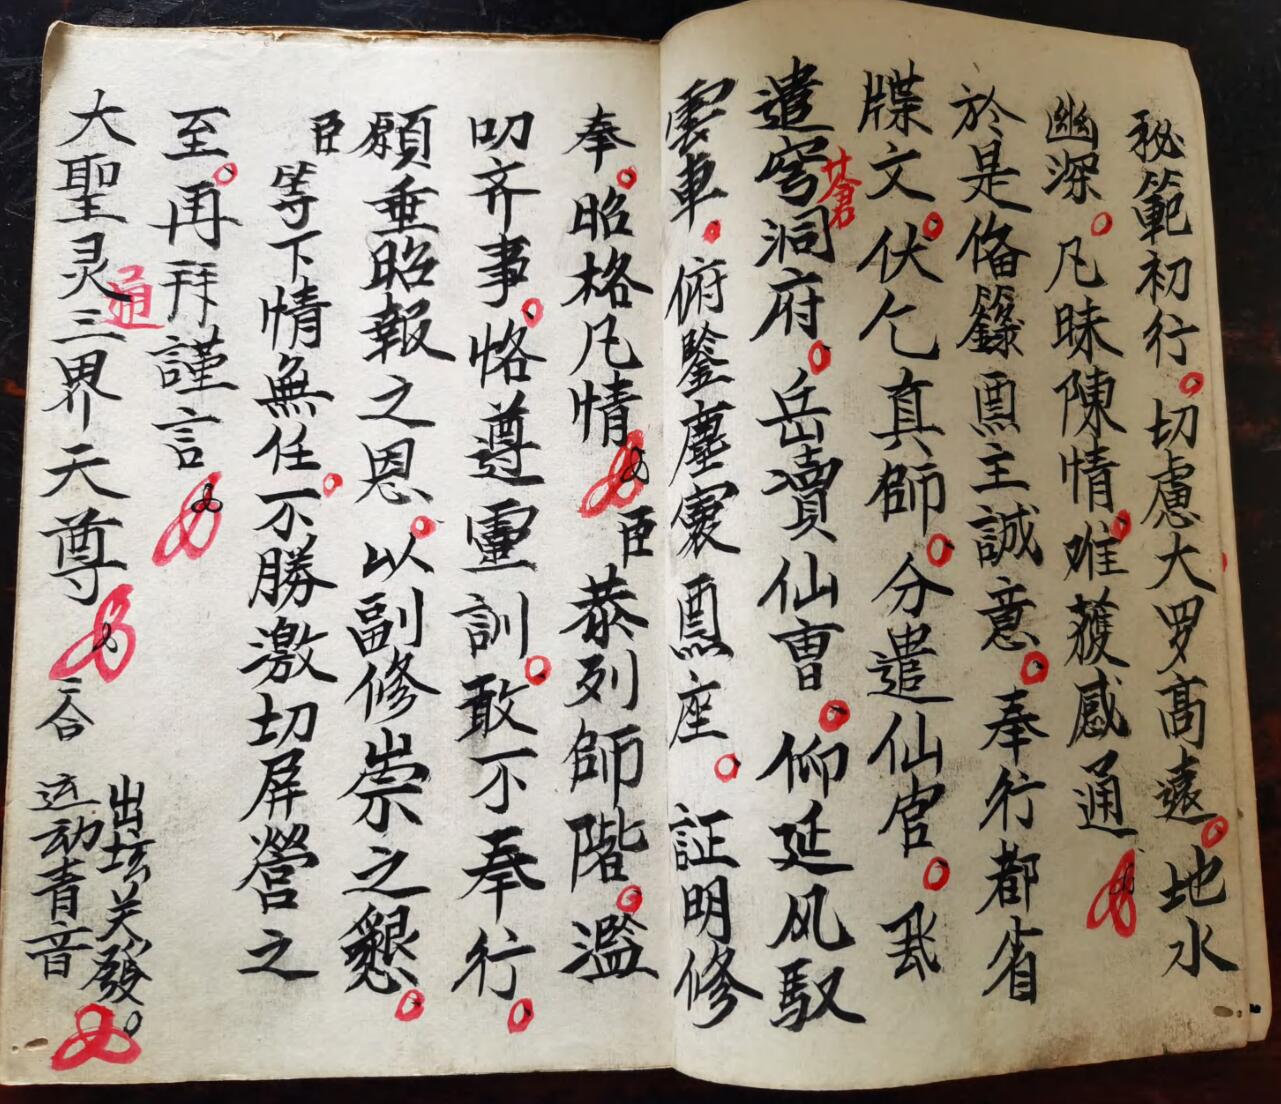 秘範初行。切慮大罗高遠。地水
幽深。凡昧陳情。难获感通
於是俻籙焉主誠意。奉行都省
牒文。伏乞真師。分遣仙官。飛
遣穹洞府。岳瀆仙曹。仰延风驭
蒼
雲車。俯鑒塵寰焉座。証明修
奉。昭格凡情 臣 恭列師階。濫
叨齐事。恪遵靈訓。敢不奉行。
願垂昭報之恩。以副修崇之懇。
臣等下情無任。不勝激切屏營之
至。再拜謹言
大聖灵三界天尊 三合
通
出坛关發。
运动青音